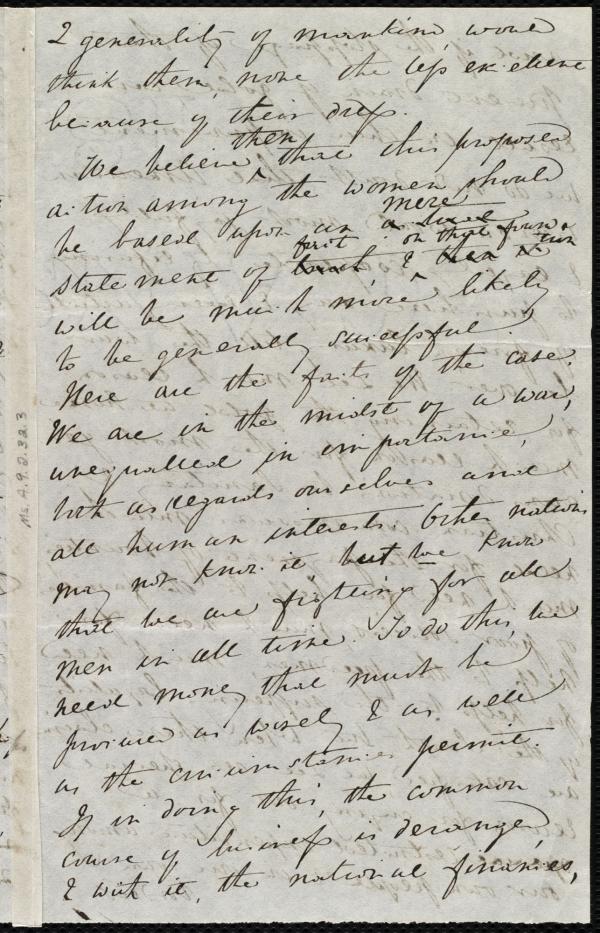 & generality of mankind, would
think them, none the less excellent
because of their dress.
We believe then that this proposed
action among the women should
be based upon an a mere
statement of fact & on that foundation
will be much more likely
to be generally successful.
Here are the facts of the case.
We are in the midst of a war,
unequalled in importance,
both as regards ourselves and
all human interests. Other nations
may not know it but we know
that we are fighting for all
men in all time. To do this, we
need money that must be
procured as wisely & as well
as the circumstances permit.
If in doing this, the common
course of business is deranged,
& with it, the national finances,
Ms. A.9.2.32.3